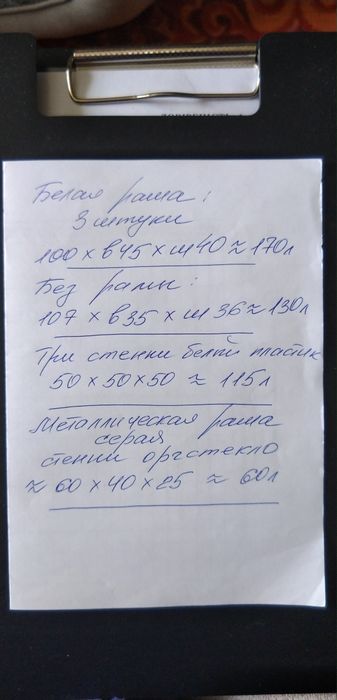 Белая рама:
3 штуки
100 × в45 × ш40 ≈ 170л
Без рамы:
107 × в35 × ш 36 ≈ 130л
Три стенки белый пластик
50 × 50 × 50 ≈ 115л
Металлическая рама
серая
стенки оргстекло
≈ 60 × 40 × 25 ≈ 60л